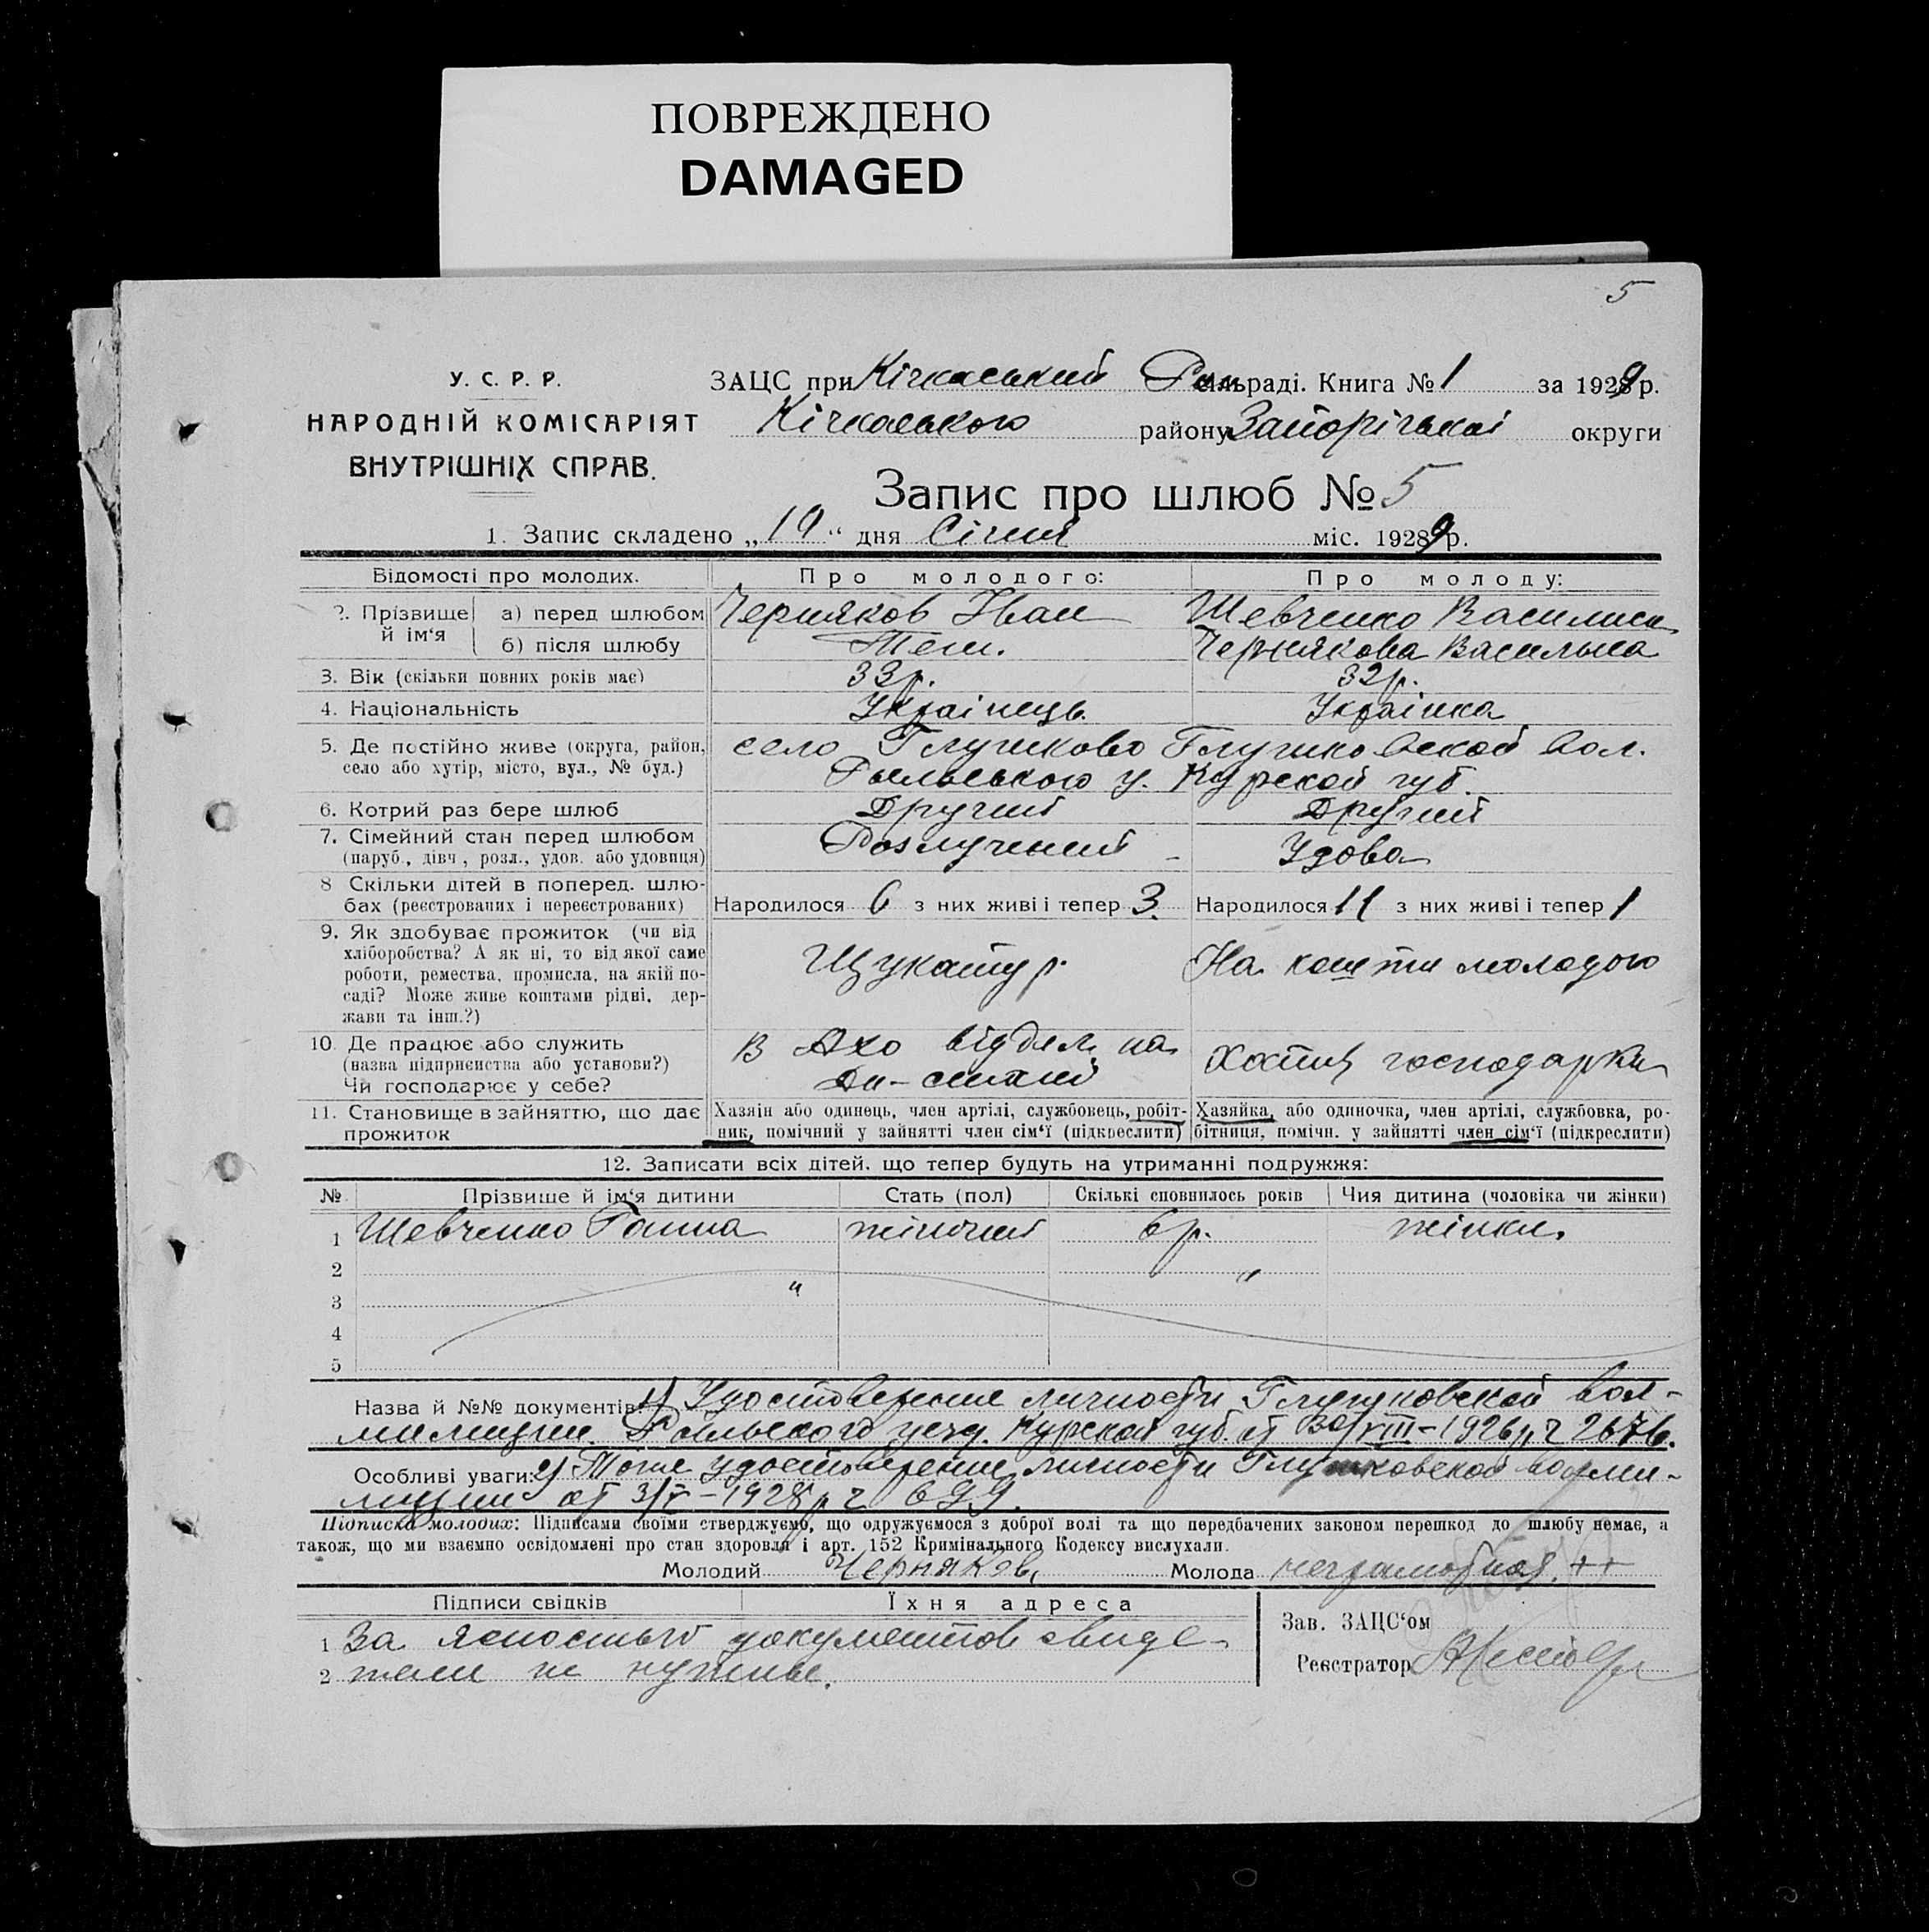 ПОВРЕЖДЕНО
DAMAGED
5
У. С. Р. Р.
НАРОДНІЙ КОМІСАРІЯТ
ВНУТРІШНІХ СПРАВ.
ЗАЦС при Кічкаський Рай сільраді. Книга № 1 за 1929 р.
Кічкаського району Запорізької округи
Запис про шлюб № 5
1. Запис складено „19“ дня Січня міс. 1929 р.
Відомості про молодих. Про молодого: Про молоду:
2. Прізвище й ім‘я а) перед шлюбом Черняков Іван Шевченко Василиса
б) після шлюбу Теж. Чернякова Василиса
3. Вік (скільки повних років має) 33 р. 32 р.
4. Національність Українець. Українка
5. Де постійно живе (округа, район, село або хутір, місто, вул., № буд.) село Глушково Глушковской вол.
Рыльського у. Курской губ.
6. Котрий раз бере шлюб Другий Другий
7. Сімейний стан перед шлюбом Розлучений Удова
(паруб., дівч., розл., удов. або удовиця)
8 Скільки дітей в поперед. шлю-
бах (реєстрованих і нереєстрованих) Народилося 6 з них живі і тепер 3. Народилося 11 з них живі і тепер 1
9. Як здобуває прожиток (чи від
хліборобства? А як ні, то від якої саме
роботи, ремества, промисла, на якій по-
саді? Може живе коштами рідні, дер-
жави та інш.?) Щукатур. На кошти молодого
10. Де працює або служить
(назва підприємства або установи?)
Чи господарює у себе? В Ахо відділ. на Хатня господарка
11. Становище в зайняттю, що дає
прожиток
Хазяїн або одинець, член артілі, службовець, робіт-
ник, помічний у зайнятті член сім‘ї (підкреслити)
Хазяйка, або одиночка, член артілі, службовка, ро-
бітниця, помічн. у зайнятті член сім‘ї (підкреслити)
12. Записати всіх дітей, що тепер будуть на утриманні подружжя:
№ Прізвище й ім‘я дитини Стать (пол) Скількі сповнилось років Чия дитина (чоловіка чи жінки)
1 Шевченко Ганна жіночий 6 р. жінки.
2
3
4
5
Назва й №№ документів: 1) Удостоверение личности Глушковской вол-
милиции Рыльского уезд. Курской губ. от 30/VIII-1926 р. ч 2676.
Особливі уваги: 2) Тоже удостоверение личности Глушковской волми-
лиции от 3/V-1928 р ч 699.
Підписка молодих: Підписами своїми стверджуємо, що одружуємося з доброї волі та що передбачених законом перешкод до шлюбу немає, а
також, що ми взаємно освідомлені про стан здоровля і арт. 152 Кримінального Кодексу вислухали.
Молодий Черняков, Молода неграмотная. ++
Підписи свідків Їхня адреса
1 За ясностью документов свиде-
2 тели не нужны.
Зав. ЗАЦС‘ом
Реєстратор